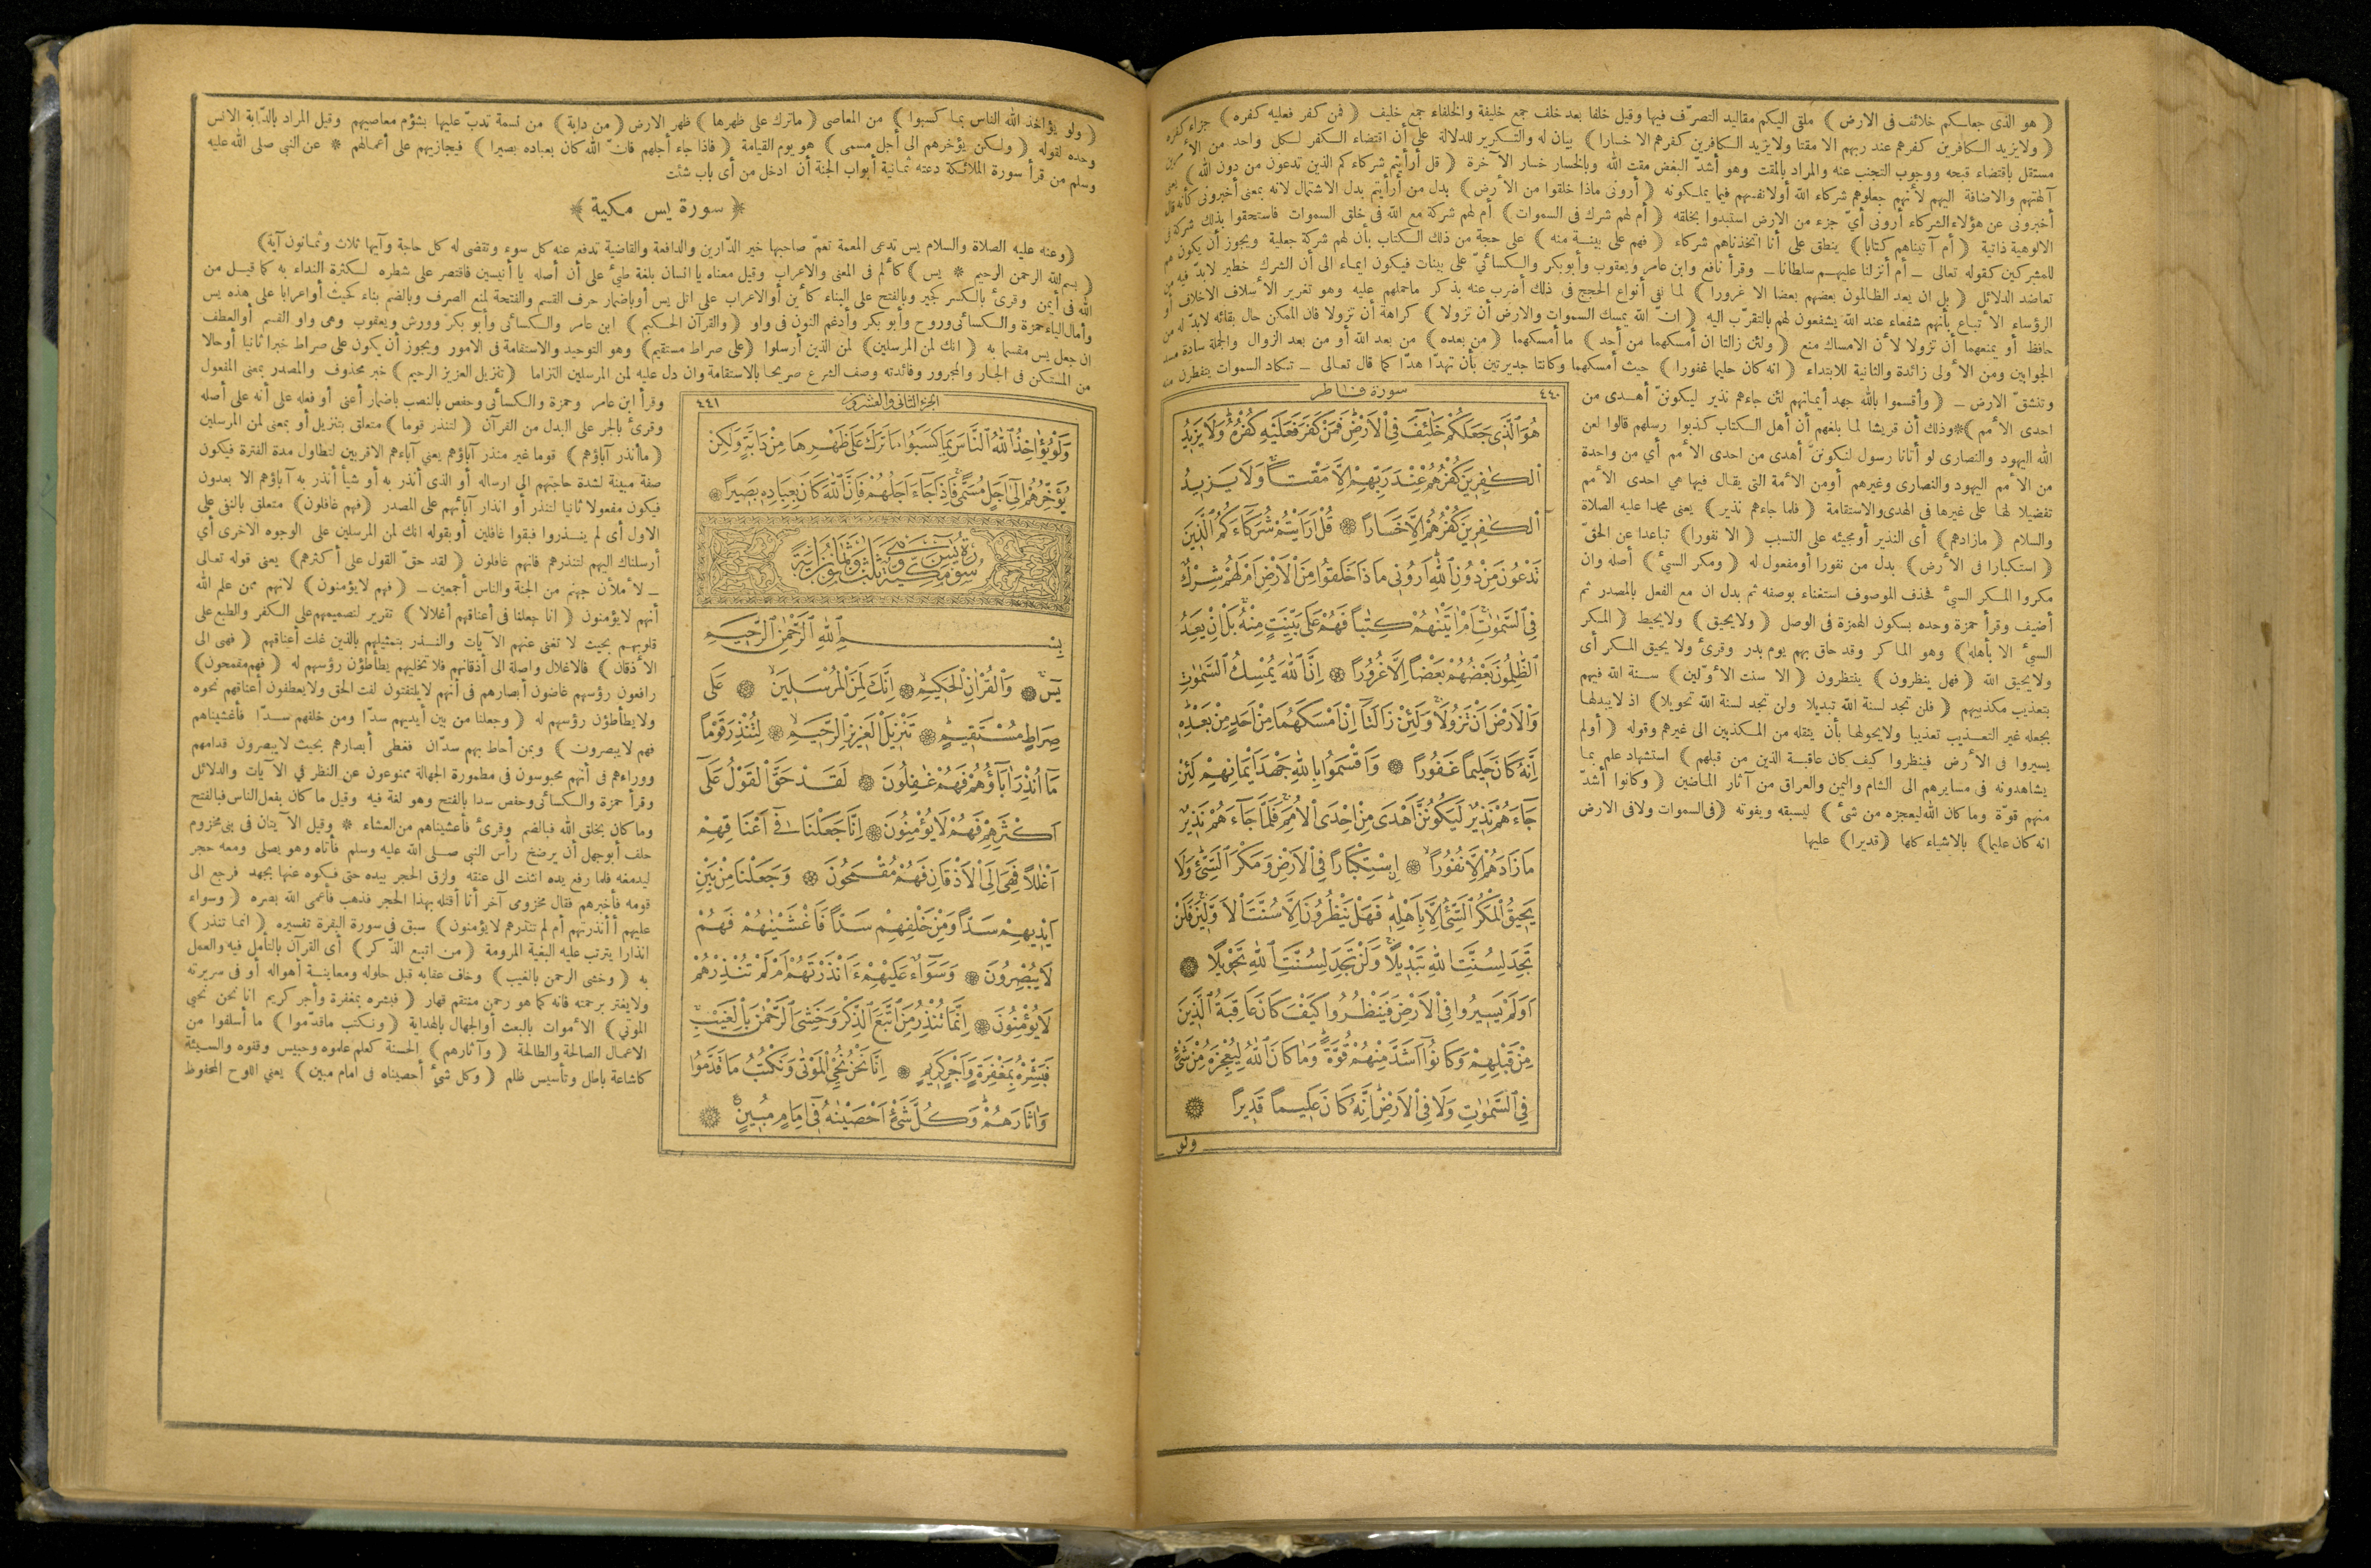 ﴿ هو الذى جعلكم خلائف فى الارض ﴾ ملقى اليكم مقاليد التصرّف فيها وقيل خلفا بعد خلف جمع خليفة والخلفاء جمع خليف ﴿ فمن كفر فعليه كفره ﴾ جزاء كفره
﴿ ولا يزيد الكافرين كفرهم عند ربهم الا مقتا ولا يزيد الكافرين كفرهم الا خسارا ﴾ بيان له والتكرير للدلالة على أن اقتضاء الكفر لكل واحد من الأمرين
مستقل باقتضاء قبحه ووجوب التجنب عنه والمراد بالمقت وهو أشدّ البغض مقت الله وبالخسار خسار الآخرة ﴿ قل أرأيتم شركاءكم الذين تدعون من دون الله ﴾ يعنى
آلهتهم والاضافة اليهم لأنهم جعلوهم شركاء الله أولانفسهم فيما يملكونه ﴿ أرونى ماذا خلقوا من الأرض ﴾ بدل من أرأيتم بدل الاشتمال لانه بمعنى أخبرونى كأنه قال
أخبرونى عن هؤلاء الشركاء أرونى أىّ جزء من الارض استبدوا بخلقه ﴿ أم لهم شرك فى السموات ﴾ أم لهم شركة مع الله فى خلق السموات فاستحقوا بذلك شركة فى
الالوهية ذاتية ﴿ أم آتيناهم كتابا ﴾ ينطق على أنا اتخذناهم شركاء ﴿ فهم على بينة منه ﴾ على حجة من ذلك الكتاب بأن لهم شركة جعلية ويجوز أن يكون هم
للمشركين كقوله تعالى ـ أم أنزلنا عليهم سلطانا ـ وقرأ نافع وابن عامر ويعقوب وأبوبكر والكسائىّ على بينات فيكون ايماء الى أن الشرك خطير لابدّ فيه من
تعاضد الدلائل ﴿ بل ان يعد الظالمون بعضهم بعضا الا غرورا ﴾ لما نفى أنواع الحجج فى ذلك أضرب عنه بذكر ماحملهم عليه وهو تغرير الأسلاف الأخلاف أو
الرؤساء الأتباع بأنهم شفعاء عند الله يشفعون لهم بالتقرّب اليه ﴿ انّ الله يمسك السموات والارض أن تزولا ﴾ كراهة أن تزولا فان الممكن حال بقائه لابدّ له من
حافظ أو يمنعهما أن تزولا لأن الامساك منع ﴿ ولئن زالتا ان أمسكهما من أحد ﴾ ما أمسكهما ﴿ من بعده ﴾ من بعد الله أو من بعد الزوال والجملة سادة مسد
الجوابين ومن الأولى زائدة والثانية للابتداء ﴿ انه كان حليما غفورا ﴾ حيث أمسكهما وكانتا جديرتين بأن تهدّا هدّا كما قال تعالى ـ تكاد السموات يتفطرن منه
وتنشقّ الارض ـ ﴿ وأقسموا بالله جهد أيمانهم لئن جاءهم نذير ليكوننّ أهدى من
احدى الأمم ﴾ وذلك أن قريشا لما بلغهم أن أهل الكتاب كذبوا رسلهم قالوا لعن
الله اليهود والنصارى لو أتانا رسول لنكوننّ أهدى من احدى الأمم أى من واحدة
من الأمم اليهود والنصارى وغيرهم أو من الأمة التى يقال فيها هى احدى الأمم
تفضيلا لها على غيرها فى الهدى والاستقامة ﴿ فلما جاءهم نذير ﴾ يعنى محمدا عليه الصلاة
والسلام ﴿ مازادهم ﴾ أى النذير أو مجيئه على التسبب ﴿ الا نفورا ﴾ تباعدا عن الحقّ
﴿ استكبارا فى الأرض ﴾ بدل من نفورا أو مفعول له ﴿ ومكر السيئ ﴾ أصله وان
مكروا المكر السيئ فحذف الموصوف استغناء بوصفه ثم بدل ان مع الفعل بالمصدر ثم
أضيف وقرأ حمزة وحده بسكون الهمزة فى الوصل ﴿ ولا يحيق ﴾ ولا يحيط ﴿ المكر
السيئ الا بأهله ﴾ وهو الماكر وقد حاق بهم يوم بدر وقرئ ولا يحيق المكر أى
ولا يحيق الله ﴿ فهل ينظرون ﴾ ينتظرون ﴿ الا سنت الأوّلين ﴾ سنة الله فيهم
بتعذيب مكذبيهم ﴿ فلن تجد لسنة الله تبديلا ولن تجد لسنة الله تحويلا ﴾ اذ لا يبدلها
بجعله غير التعذيب تعذيبا ولا يحولها بأن ينقله من المكذبين الى غيرهم وقوله ﴿ أولم
يسيروا فى الأرض فينظروا كيف كان عاقبة الذين من قبلهم ﴾ استشهاد علم بما
يشاهدونه فى مسايرهم الى الشام واليمن والعراق من آثار الماضين ﴿ وكانوا أشدّ
منهم قوّة وما كان الله ليعجزه من شئ ﴾ ليسبقه ويفوته ﴿ فى السموات ولا فى الارض
انه كان عليما ﴾ بالاشياء كلها ﴿ قديرا ﴾ عليها
٤٤٠ سورة فاطر
هُوَ الَّذِي جَعَلَكُمْ خَلَائِفَ فِي الْأَرْضِ فَمَنْ كَفَرَ فَعَلَيْهِ كُفْرُهُ وَلَا يَزِيدُ
الْكَافِرِينَ كُفْرُهُمْ عِنْدَ رَبِّهِمْ إِلَّا مَقْتًا وَلَا يَزِيدُ
الْكَافِرِينَ كُفْرُهُمْ إِلَّا خَسَارًا ۞ قُلْ أَرَأَيْتُمْ شُرَكَاءَكُمُ الَّذِينَ
تَدْعُونَ مِنْ دُونِ اللَّهِ أَرُونِي مَاذَا خَلَقُوا مِنَ الْأَرْضِ أَمْ لَهُمْ شِرْكٌ
فِي السَّمٰوَاتِ أَمْ آتَيْنَاهُمْ كِتَابًا فَهُمْ عَلَى بَيِّنَتٍ مِنْهُ بَلْ إِنْ يَعِدُ
الظَّالِمُونَ بَعْضُهُمْ بَعْضًا إِلَّا غُرُورًا ۞ إِنَّ اللَّهَ يُمْسِكُ السَّمٰوَاتِ
وَالْأَرْضَ أَنْ تَزُولَا وَلَئِنْ زَالَتَا إِنْ أَمْسَكَهُمَا مِنْ أَحَدٍ مِنْ بَعْدِهِ
إِنَّهُ كَانَ حَلِيمًا غَفُورًا ۞ وَأَقْسَمُوا بِاللَّهِ جَهْدَ أَيْمَانِهِمْ لَئِنْ
جَاءَهُمْ نَذِيرٌ لَيَكُونُنَّ أَهْدَى مِنْ إِحْدَى الْأُمَمِ فَلَمَّا جَاءَهُمْ نَذِيرٌ
مَا زَادَهُمْ إِلَّا نُفُورًا ۞ اسْتِكْبَارًا فِي الْأَرْضِ وَمَكْرَ السَّيِّئِ وَلَا
يَحِيقُ الْمَكْرُ السَّيِّئُ إِلَّا بِأَهْلِهِ فَهَلْ يَنْظُرُونَ إِلَّا سُنَّتَ الْأَوَّلِينَ فَلَنْ
تَجِدَ لِسُنَّتِ اللَّهِ تَبْدِيلًا وَلَنْ تَجِدَ لِسُنَّتِ اللَّهِ تَحْوِيلًا ۞
أَوَلَمْ يَسِيرُوا فِي الْأَرْضِ فَيَنْظُرُوا كَيْفَ كَانَ عَاقِبَةُ الَّذِينَ
مِنْ قَبْلِهِمْ وَكَانُوا أَشَدَّ مِنْهُمْ قُوَّةً وَمَا كَانَ اللَّهُ لِيُعْجِزَهُ مِنْ شَيْءٍ
فِي السَّمٰوَاتِ وَلَا فِي الْأَرْضِ إِنَّهُ كَانَ عَلِيمًا قَدِيرًا ۞
ولو
﴿ ولو يؤاخذ الله الناس بما كسبوا ﴾ من المعاصى ﴿ ماترك على ظهرها ﴾ ظهر الارض ﴿ من دابة ﴾ من نسمة تدبّ عليها بشؤم معاصيهم وقيل المراد بالدّابة الانس
وحده لقوله ﴿ ولكن يؤخرهم الى أجل مسمى ﴾ هو يوم القيامة ﴿ فاذا جاء أجلهم فانّ الله كان بعباده بصيرا ﴾ فيجازيهم على أعمالهم * عن النبى صلى الله عليه
وسلم من قرأ سورة الملائكة دعته ثمانية أبواب الجنة أن ادخل من أى باب شئت
﴿ سورة يس مكية ﴾
(وعنه عليه الصلاة والسلام يس تدعى المعمة تعمّ صاحبها خير الدّارين والدافعة والقاضية تدفع عنه كل سوء وتقضى له كل حاجة وآيها ثلاث وثمانون آية)
﴿ بسم الله الرحمن الرحيم * يس ﴾ كألم فى المعنى والاعراب وقيل معناه يا انسان بلغة طيئ على أن أصله يا أنيسين فاقتصر على شطره لكثرة النداء به كما قيل من
الله فى أيمن وقرئ بالكسر كجير وبالفتح على البناء كأين أو الاعراب على اتل يس أو باضمار حرف القسم والفتحة لمنع الصرف وبالضم بناء كحيث أو اعرابا على هذه يس
وأمال الياء حمزة والكسائى وروح وأبو بكر وأدغم النون فى واو ﴿ والقرآن الحكيم ﴾ ابن عامر والكسائى وأبو بكر وورش ويعقوب وهى واو القسم أو العطف
ان جعل يس مقسما به ﴿ انك لمن المرسلين ﴾ لمن الذين أرسلوا ﴿ على صراط مستقيم ﴾ وهو التوحيد والاستقامة فى الامور ويجوز أن يكون على صراط خبرا ثانيا أو حالا
من المستكن فى الجار والمجرور وفائدته وصف الشرع صريحا بالاستقامة وان دل عليه لمن المرسلين التزاما ﴿ تنزيل العزيز الرحيم ﴾ خبر محذوف والمصدر بمعنى المفعول
وقرأ ابن عامر وحمزة والكسائى وحفص بالنصب باضمار أعنى أو فعله على أنه على أصله
وقرئ بالجر على البدل من القرآن ﴿ لتنذر قوما ﴾ متعلق بتنزيل أو بمعنى لمن المرسلين
﴿ ما أنذر آباؤهم ﴾ قوما غير منذر آباؤهم يعنى آباءهم الاقربين لتطاول مدة الفترة فيكون
صفة مبينة لشدة حاجتهم الى ارساله أو الذى أنذر به أو شيأ أنذر به آباؤهم الا بعدون
فيكون مفعولا ثانيا لتنذر أو انذار آبائهم على المصدر ﴿ فهم غافلون ﴾ متعلق بالنفى على
الاول أى لم ينذروا فبقوا غافلين أو بقوله انك لمن المرسلين على الوجوه الاخرى أى
أرسلناك اليهم لتنذرهم فانهم غافلون ﴿ لقد حقّ القول على أكثرهم ﴾ يعنى قوله تعالى
ـ لأملأن جهنم من الجنة والناس أجمعين ـ ﴿ فهم لا يؤمنون ﴾ لانهم ممن علم الله
أنهم لا يؤمنون ﴿ انا جعلنا فى أعناقهم أغلالا ﴾ تقرير لتصميمهم على الكفر والطبع على
قلوبهم بحيث لا تغنى عنهم الآيات والنذر بتمثيلهم بالذين غلت أعناقهم ﴿ فهى الى
الأذقان ﴾ فالاغلال واصلة الى أذقانهم فلا تخليهم يطأطؤن رؤسهم له ﴿ فهم مقمحون ﴾
رافعون رؤسهم غاضون أبصارهم فى أنهم لا يلتفتون لفت الحق ولا يعطفون أعناقهم نحوه
ولا يطأطؤن رؤسهم له ﴿ وجعلنا من بين أيديهم سدّا ومن خلفهم سدّا فأغشيناهم
فهم لا يبصرون ﴾ وبمن أحاط بهم سدّان فغطى أبصارهم بحيث لا يبصرون قدامهم
ووراءهم فى أنهم محبوسون فى مطمورة الجهالة ممنوعون عن النظر فى الآيات والدلائل
وقرأ حمزة والكسائى وحفص سدا بالفتح وهو لغة فيه وقيل ما كان بفعل الناس فبالفتح
وما كان بخلق الله فبالضم وقرئ فأعشيناهم من العشاء * وقيل الآيتان فى بنى مخزوم
حلف أبو جهل أن يرضخ رأس النبى صلى الله عليه وسلم فأتاه وهو يصلى ومعه حجر
ليدمغه فلما رفع يده انثنت الى عنقه ولزق الحجر بيده حتى فكوه عنها بجهد فرجع الى
قومه فأخبرهم فقال مخزومى آخر أنا أقتله بهذا الحجر فذهب فأعمى الله بصره ﴿ وسواء
عليهم أأنذرتهم أم لم تنذرهم لا يؤمنون ﴾ سبق فى سورة البقرة تفسيره ﴿ انما تنذر ﴾
انذارا يترتب عليه البغية المرومة ﴿ من اتبع الذكر ﴾ أى القرآن بالتأمل فيه والعمل
به ﴿ وخشى الرحمن بالغيب ﴾ وخاف عقابه قبل حلوله ومعاينة أهواله أو فى سريرته
ولا يغتر برحمته فانه كما هو رحمن منتقم قهار ﴿ فبشره بمغفرة وأجر كريم انا نحن نحيى
الموتى ﴾ الأموات بالبعث أو الجهال بالهداية ﴿ ونكتب ما قدّموا ﴾ ما أسلفوا من
الاعمال الصالحة والطالحة ﴿ وآثارهم ﴾ الحسنة كعلم علموه وحبيس وقفوه والسيئة
كاشاعة باطل وتأسيس ظلم ﴿ وكل شئ أحصيناه فى امام مبين ﴾ يعنى اللوح المحفوظ
الجزء الثانى والعشرون ٤٤١
وَلَوْ يُؤَاخِذُ اللَّهُ النَّاسَ بِمَا كَسَبُوا مَا تَرَكَ عَلَى ظَهْرِهَا مِنْ دَابَّةٍ وَلَكِنْ
يُؤَخِّرُهُمْ إِلَى أَجَلٍ مُسَمًّى فَإِذَا جَاءَ أَجَلُهُمْ فَإِنَّ اللَّهَ كَانَ بِعِبَادِهِ بَصِيرًا ۞
سورة يس مكية وهى ثلث وثمانون آية
بِسْمِ اللَّهِ الرَّحْمٰنِ الرَّحِيمِ
يس ۞ وَالْقُرْآنِ الْحَكِيمِ ۞ إِنَّكَ لَمِنَ الْمُرْسَلِينَ ۞ عَلَى
صِرَاطٍ مُسْتَقِيمٍ ۞ تَنْزِيلَ الْعَزِيزِ الرَّحِيمِ ۞ لِتُنْذِرَ قَوْمًا
مَا أُنْذِرَ آبَاؤُهُمْ فَهُمْ غَافِلُونَ ۞ لَقَدْ حَقَّ الْقَوْلُ عَلَى
أَكْثَرِهِمْ فَهُمْ لَا يُؤْمِنُونَ ۞ إِنَّا جَعَلْنَا فِي أَعْنَاقِهِمْ
أَغْلَالًا فَهِيَ إِلَى الْأَذْقَانِ فَهُمْ مُقْمَحُونَ ۞ وَجَعَلْنَا مِنْ بَيْنِ
أَيْدِيهِمْ سَدًّا وَمِنْ خَلْفِهِمْ سَدًّا فَأَغْشَيْنَاهُمْ فَهُمْ
لَا يُبْصِرُونَ ۞ وَسَوَاءٌ عَلَيْهِمْ ءَأَنْذَرْتَهُمْ أَمْ لَمْ تُنْذِرْهُمْ
لَا يُؤْمِنُونَ ۞ إِنَّمَا تُنْذِرُ مَنِ اتَّبَعَ الذِّكْرَ وَخَشِيَ الرَّحْمٰنَ بِالْغَيْبِ
فَبَشِّرْهُ بِمَغْفِرَةٍ وَأَجْرٍ كَرِيمٍ ۞ إِنَّا نَحْنُ نُحْيِي الْمَوْتَى وَنَكْتُبُ مَا قَدَّمُوا
وَآثَارَهُمْ وَكُلَّ شَيْءٍ أَحْصَيْنَاهُ فِي إِمَامٍ مُبِينٍ ۞